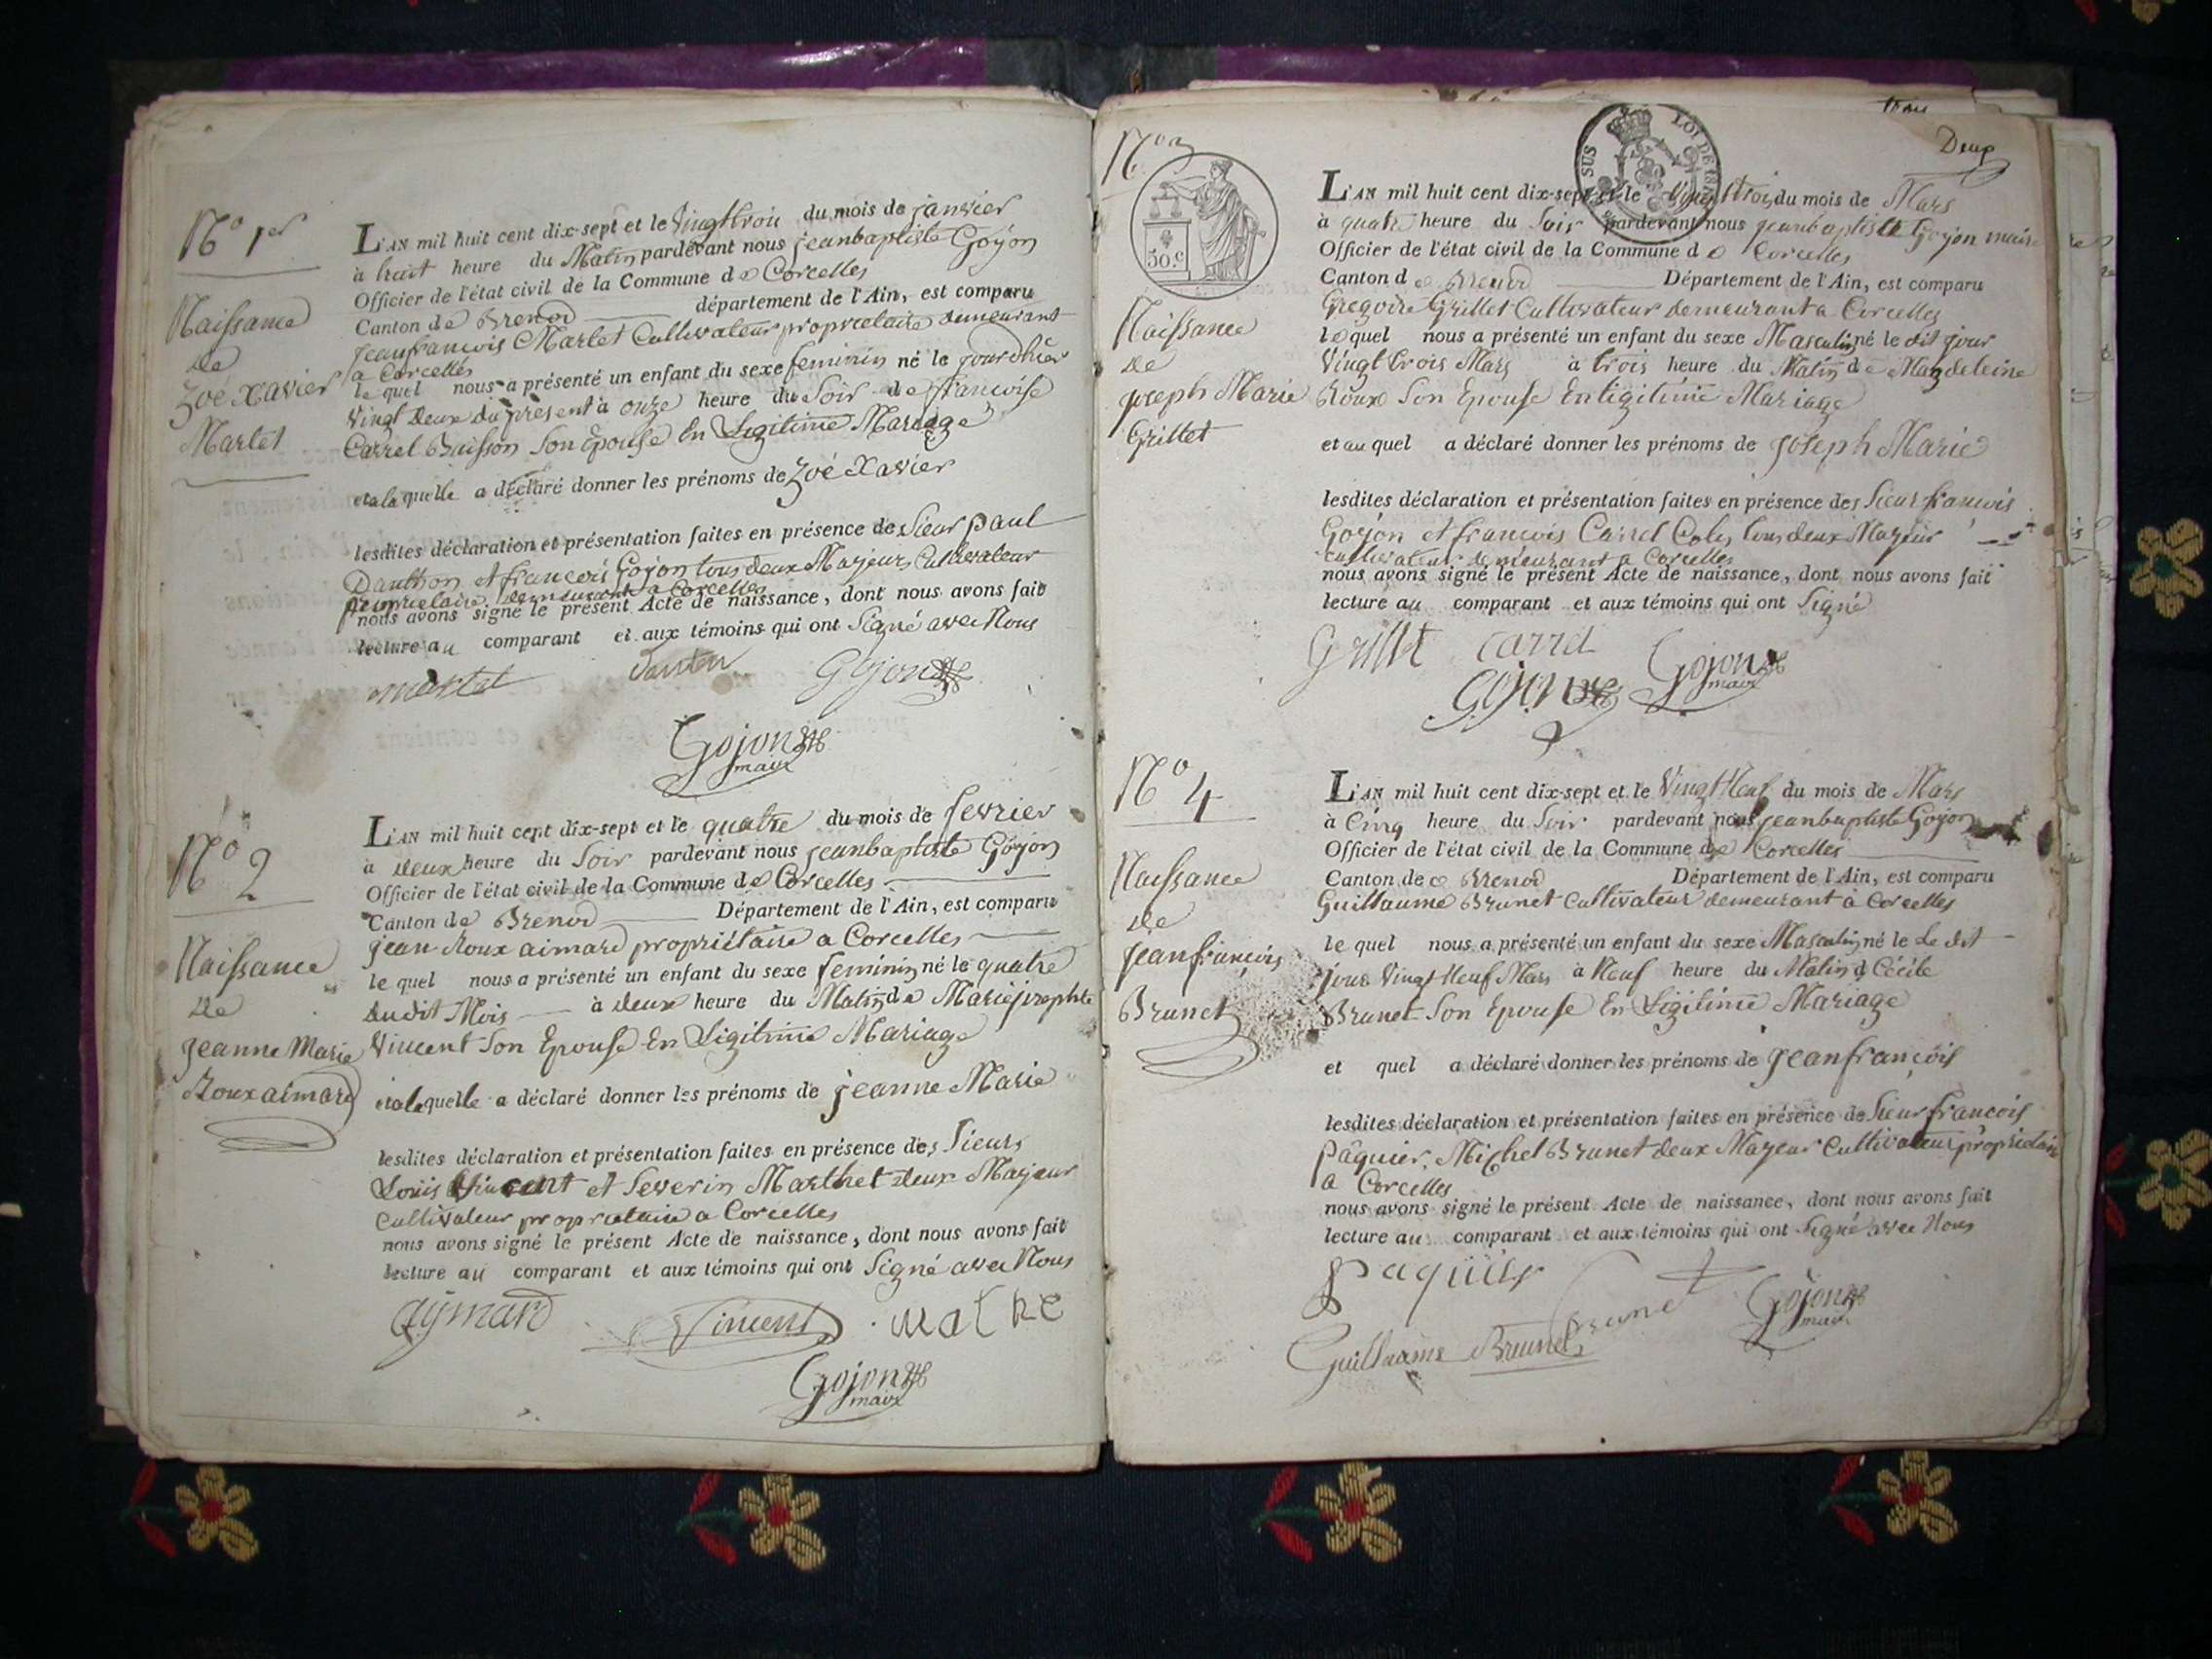 N.º 1er
Naissance
de
Zoé Xavier
Martet
L'AN mil huit cent dix-sept et le Vingt trois du mois de janvier
à huit heure du Matin pardevant nous jeanbaptiste Gojon
Officier de l'état civil de la Commune de Corcelles
Canton de Brenod département de l'Ain, est comparu
jeanfrancois Martet Cultivateur proprietaire demeurant
a Corcelles
lequel nous a présenté un enfant du sexe feminin né le jour dhier
Vingt Deux du présent à onze heure du Soir de francoise
Carrel Buisson Son Epouse En Legitime Mariage
et a la quelle a déclaré donner les prénoms de Zoé Xavier
lesdites déclaration et présentation faites en présence des Sieur paul
Danthon et francois Gojon tous deux Majeurs Cultivateur
proprietaire demeurant a Corcelles
nous avons signé le présent Acte de naissance, dont nous avons fait
lecture au comparant et aux témoins qui ont Signé avec Nous
martet Gojon
Gojon
maire
N.º 2
Naissance
de
jeanne Marie
Roux aimard
L'AN mil huit cent dix-sept et le quatre du mois de fevrier
à deux heure du Soir pardevant nous jeanbaptiste Gojon
Officier de l'état civil de la Commune de Corcelles
Canton de Brenod Département de l'Ain, est comparu
jean Roux aimard propriétaire a Corcelles
lequel nous a présenté un enfant du sexe feminin né le quatre
dudit Mois à deux heure du Matin de Marie josephte
Vincent Son Epouse En Legitime Mariage
et a la quelle a déclaré donner les prénoms de jeanne Marie
lesdites déclaration et présentation faites en présence des Sieurs
Louis Vincent et Severin Marthet deux Majeur
Cultivateur proprietaire a Corcelles
nous avons signé le présent Acte de naissance, dont nous avons fait
lecture au comparant et aux témoins qui ont Signé avec Nous
aymard Vincent
Gojon
maire
Deux
N.º 3
50.c
LOI DE
Naissance
de
joseph Marie
Grillet
L'AN mil huit cent dix-sept et le Vingt trois du mois de Mars
à quatre heure du Soir pardevant nous jeanbaptiste Gojon maire
Officier de l'état civil de la Commune de Corcelles
Canton de Brenod Département de l'Ain, est comparu
Gregoire Grillet Cultivateur demeurant a Corcelles
lequel nous a présenté un enfant du sexe Masculin né le dit jour
Vingt trois Mars à trois heure du Matin de Magdeleine
Roux Son Epouse En legitime Mariage
et au quel a déclaré donner les prénoms de joseph Marie
lesdites déclaration et présentation faites en présence des Sieur francois
Gojon et francois Carrel tous deux Majeur
Cultivateur demeurant a Corcelles
nous avons signé le présent Acte de naissance, dont nous avons fait
lecture au comparant et aux témoins qui ont Signé
Grillet Carrel
Gojon Gojon
maire
N.º 4
Naissance
de
jeanfrançois
Brunet
L'AN mil huit cent dix-sept et le Vingt Neuf du mois de Mars
à Cinq heure du Soir pardevant nous jeanbaptiste Gojon
Officier de l'état civil de la Commune de Corcelles
Canton de Brenod Département de l'Ain, est comparu
Guillaume Brunet Cultivateur demeurant à Corcelles
lequel nous a présenté un enfant du sexe Masculin né le Le dit
jour Vingt Neuf Mars à Neuf heure du Matin d Cécile
Brunet Son Epouse En Legitime Mariage
et quel a déclaré donner les prénoms de jeanfrançois
lesdites déclaration et présentation faites en présence de Sieur francois
pâquier, Michel Brunet deux Majeur Cultivateur proprietaire
a Corcelles
nous avons signé le présent Acte de naissance, dont nous avons fait
lecture au comparant et aux témoins qui ont Signé avec Nous
paquier Brunet Gojon
maire
Guillaume Brunet